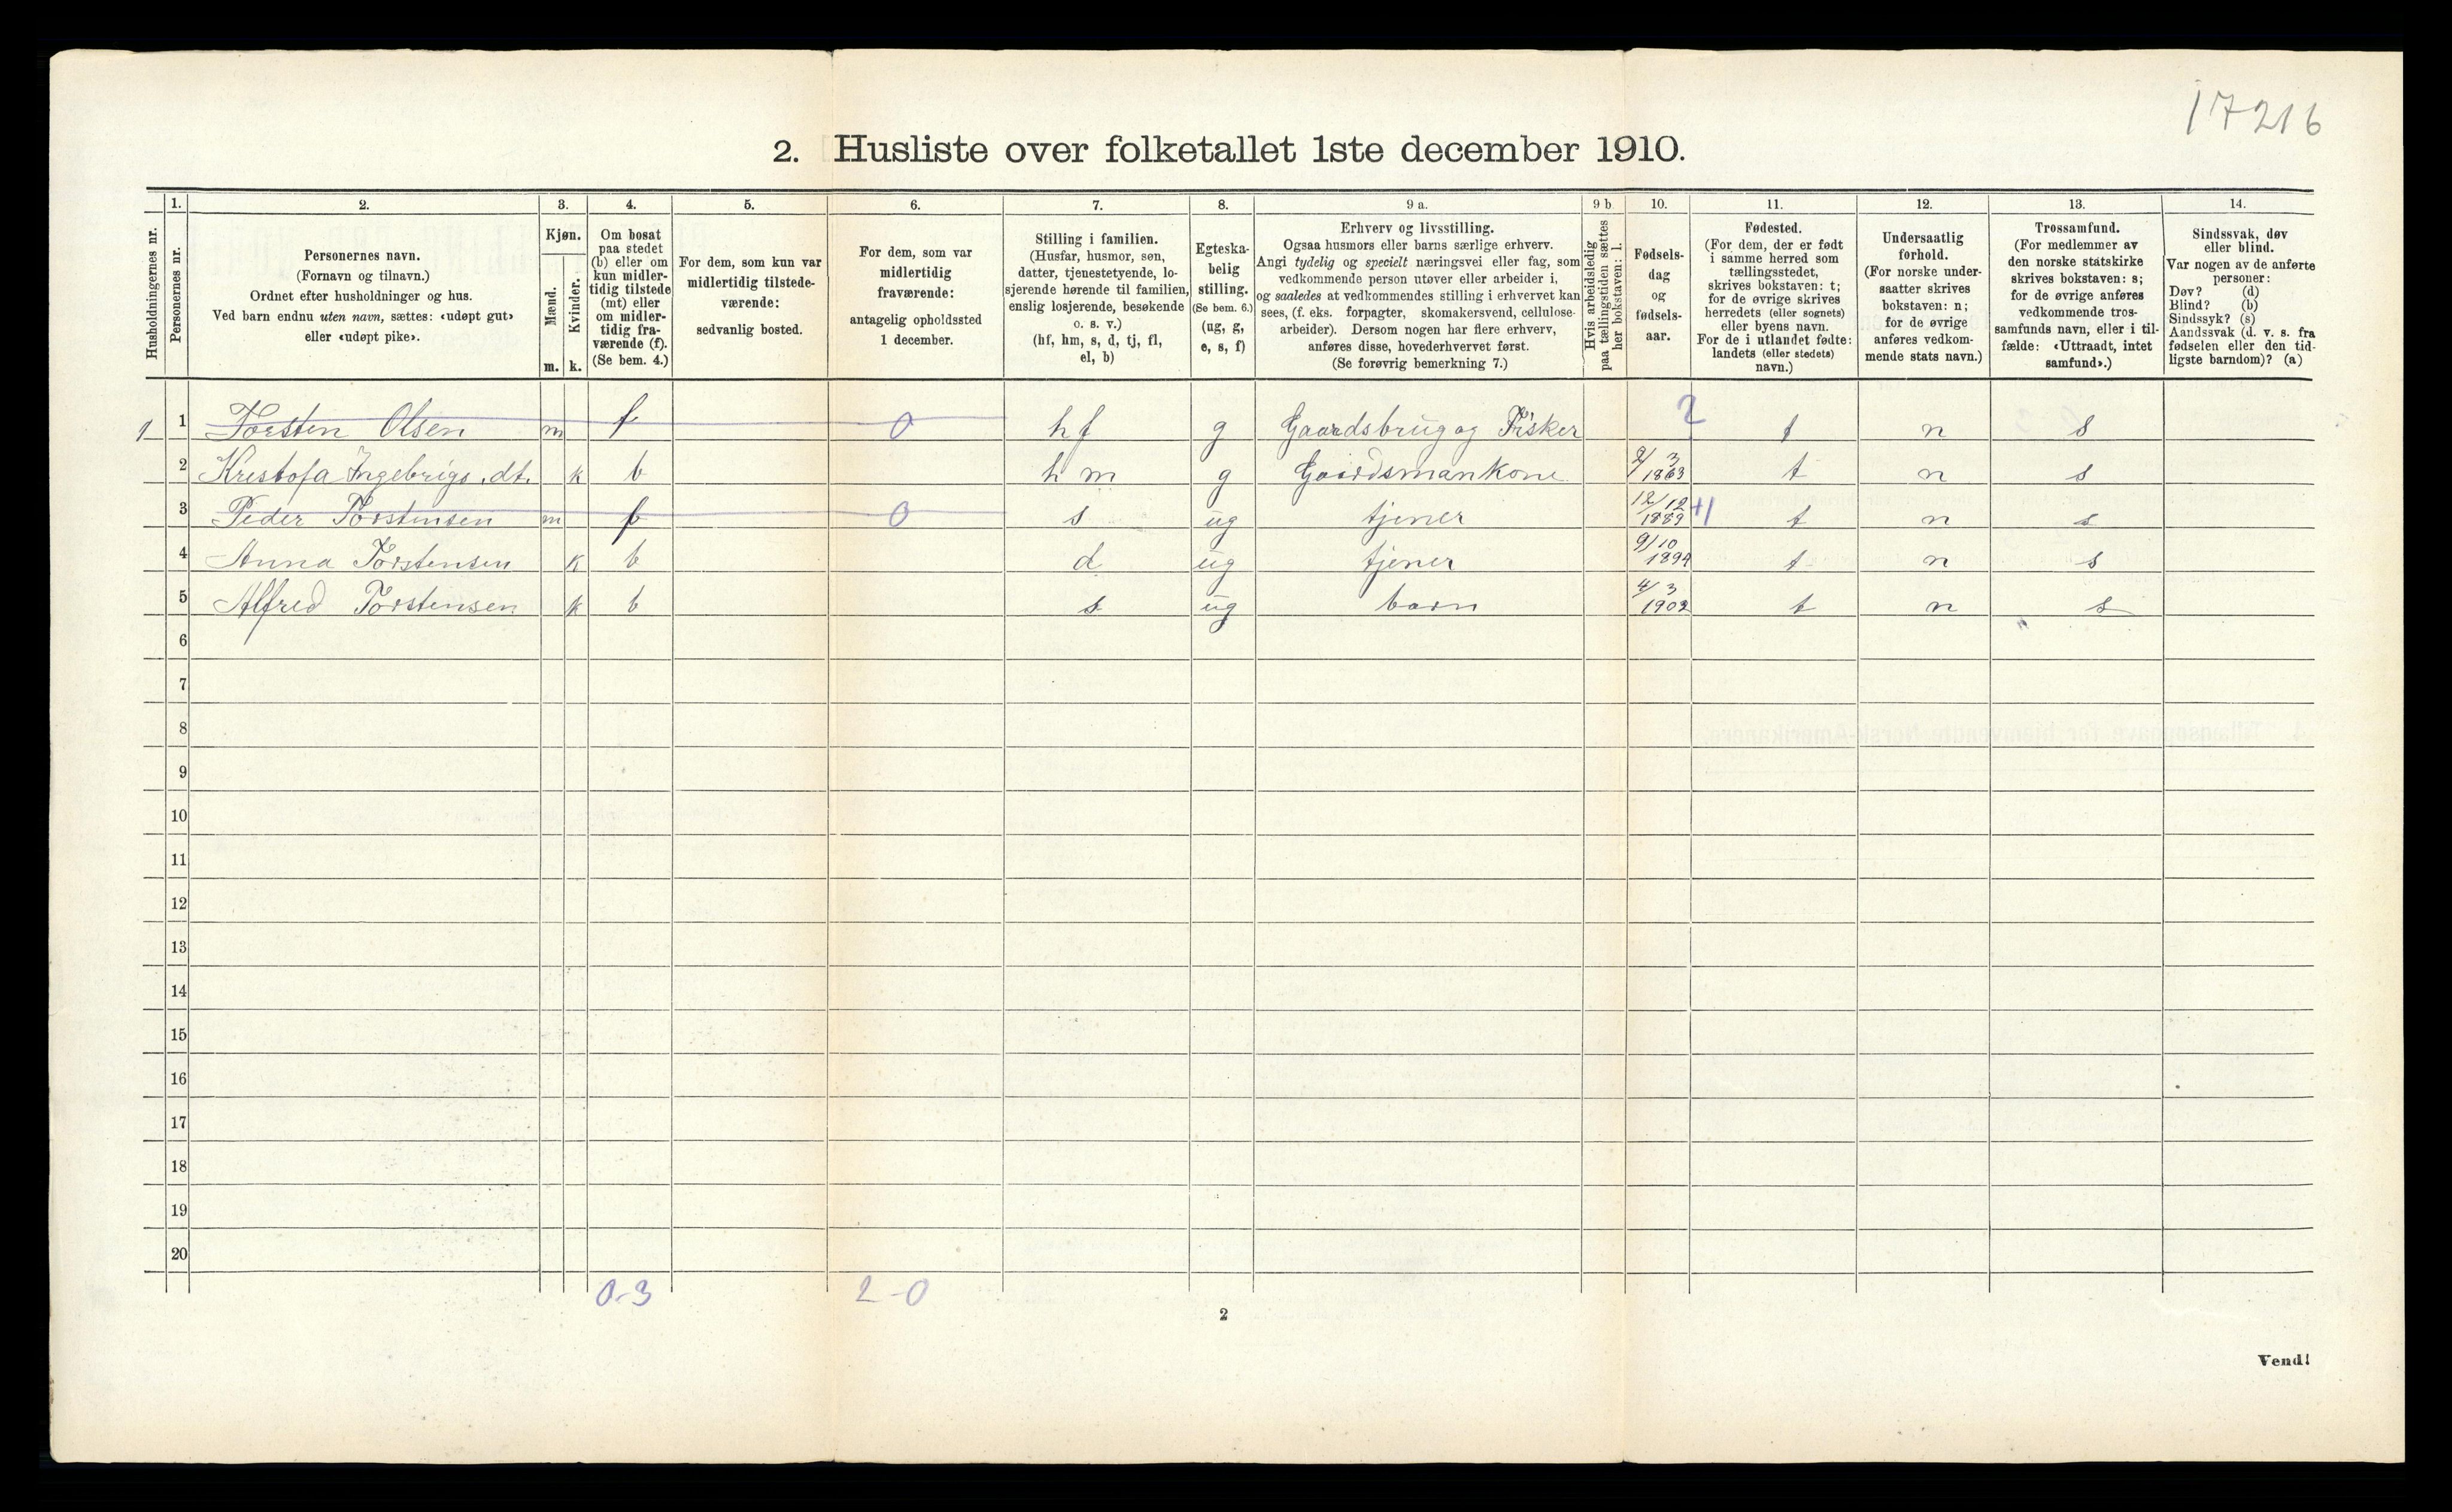 17216
2. Husliste over folketallet 1ste december 1910.
Husholdningernes nr.
1.
Personernes nr.
2.
Personernes navn.
(Fornavn og tilnavn.)
Ordnet efter husholdninger og hus.
Ved barn endnu uten navn, sættes: «udøpt gut»
eller «udøpt pike».
3.
Kjøn.
Mænd.
Kvinder.
m. k.
4.
Om bosat
paa stedet
(b) eller om
kun midler-
tidig tilstede
(mt) eller
om midler-
tidig fra-
værende (f).
(Se bem. 4.)
5.
For dem, som kun var
midlertidig tilstede-
værende:
sedvanlig bosted.
6.
For dem, som var
midlertidig
fraværende:
antagelig opholdssted
1 december.
7.
Stilling i familien.
(Husfar, husmor, søn,
datter, tjenestetyende, lo-
sjerende hørende til familien,
enslig losjerende, besøkende
o. s. v.)
(hf, hm, s, d, tj, fl,
el, b)
8.
Egteska-
belig
stilling.
(Se bem. 6.)
(ug, g,
e, s, f)
9 a.
Erhverv og livsstilling.
Ogsaa husmors eller barns særlige erhverv.
Angi tydelig og specielt næringsvei eller fag, som
vedkommende person utøver eller arbeider i,
og saaledes at vedkommendes stilling i erhvervet kan
sees, (f. eks. forpagter, skomakersvend, cellulose-
arbeider). Dersom nogen har flere erhverv,
anføres disse, hovederhvervet først.
(Se forøvrig bemerkning 7.)
9 b
Hvis arbeidsledig
paa tællingstiden sættes
her bokstaven: l.
10.
Fødsels-
dag
og
fødsels-
aar.
11.
Fødested.
(For dem, der er født
i samme herred som
tællingsstedet,
skrives bokstaven: t;
for de øvrige skrives
herredets (eller sognets)
eller byens navn.
For de i utlandet fødte:
landets (eller stedets)
navn.)
12.
Undersaatlig
forhold.
(For norske under-
saatter skrives
bokstaven: n;
for de øvrige
anføres vedkom-
mende stats navn.)
13.
Trossamfund.
(For medlemmer av
den norske statskirke
skrives bokstaven: s;
for de øvrige anføres
vedkommende tros-
samfunds navn, eller i til-
fælde: «Uttraadt, intet
samfund».)
14.
Sindssvak, døv
eller blind.
Var nogen av de anførte
personer:
Døv? (d)
Blind? (b)
Sindssyk? (s)
Aandssvak (d. v. s. fra
fødselen eller den tid-
ligste barndom)? (a)
1 1 Torsten Olsen m f 0 hf g Gaardsbrug og Fisker 2 t n s
2 Krestofa Ingebrigs.dt. k b hm g Gaardsmankone 2/3 1863 t n s
3 Peder Torstensen m f 0 s ug tjener 12/12 1889 +1 t n s
4 Anna Torstensen k b d ug tjener 9/10 1894 t n s
5 Alfred Torstensen k b s ug barn 4/3 1902 t n s
6
7
8
9
10
11
12
13
14
15
16
17
18
19
20
0-3 2-0
2
Vend!